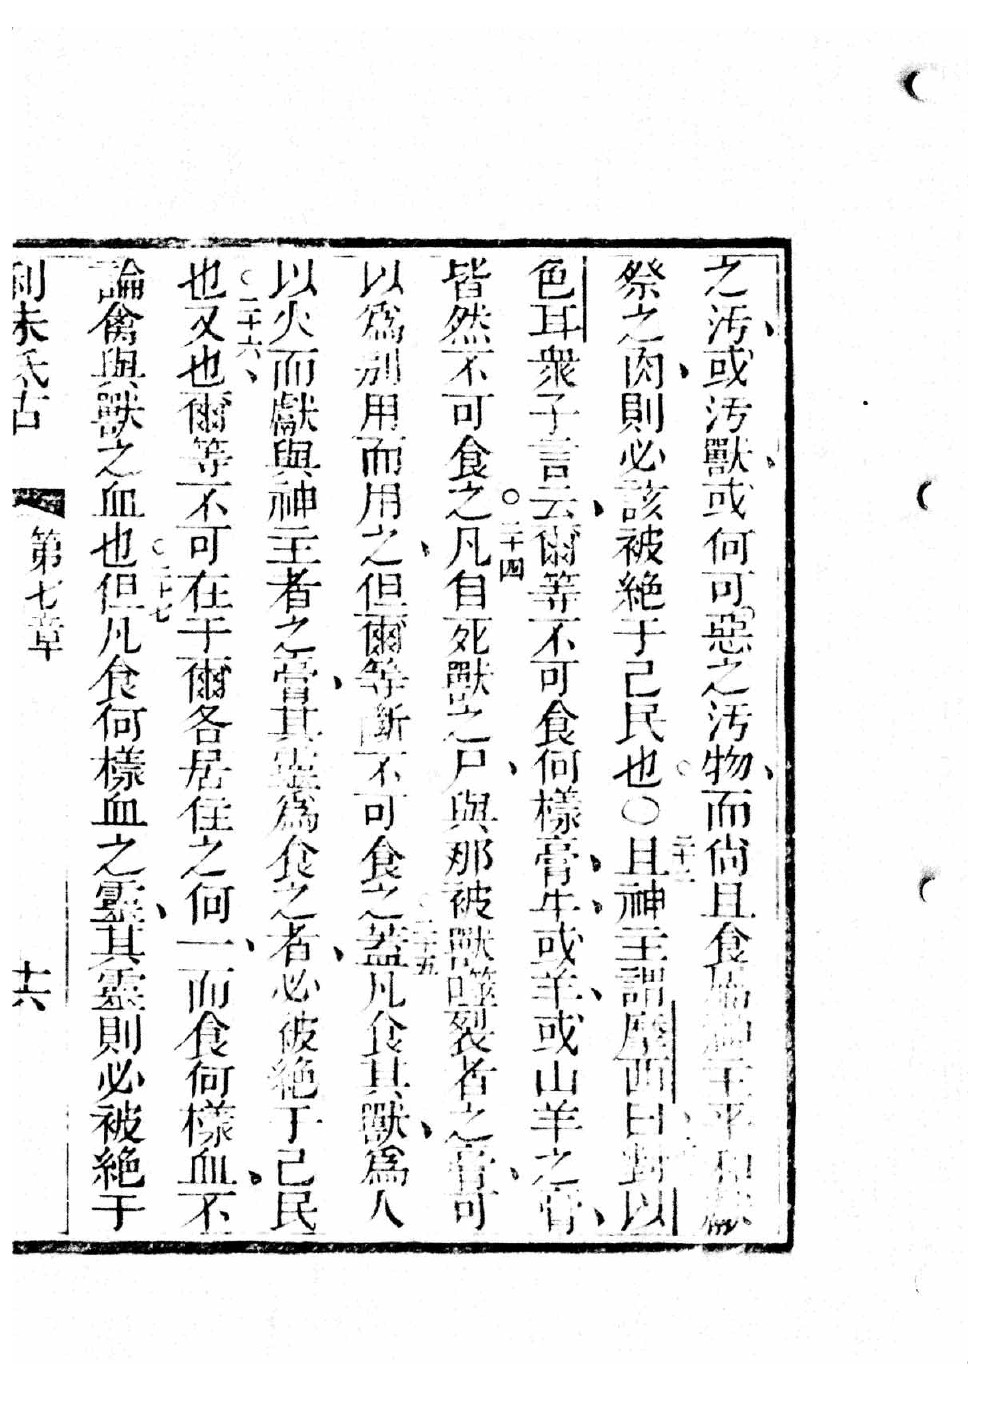 之汚或汚獸或何可惡之汚物而尙且食屬神主平和獻
祭之肉則必該被絶于己民也〇二十二且神主謂摩西曰對以
色耳衆子言云爾等不可食何樣膏牛或羊或山羊之膏
皆然不可食之二十四凡自死獸之尸與那被獸噬裂者之膏可
以爲別用而用之但爾等斷不可食之二十五蓋凡食其獸爲人
以火而獻與神主者之膏其靈爲食之者必被絶于己民
也二十六又也爾等不可在于爾各居住之何一而食何樣血不
論禽與獸之血也二十七但凡食何樣血之靈其靈則必被絶于
利未氏古 第七章 十六